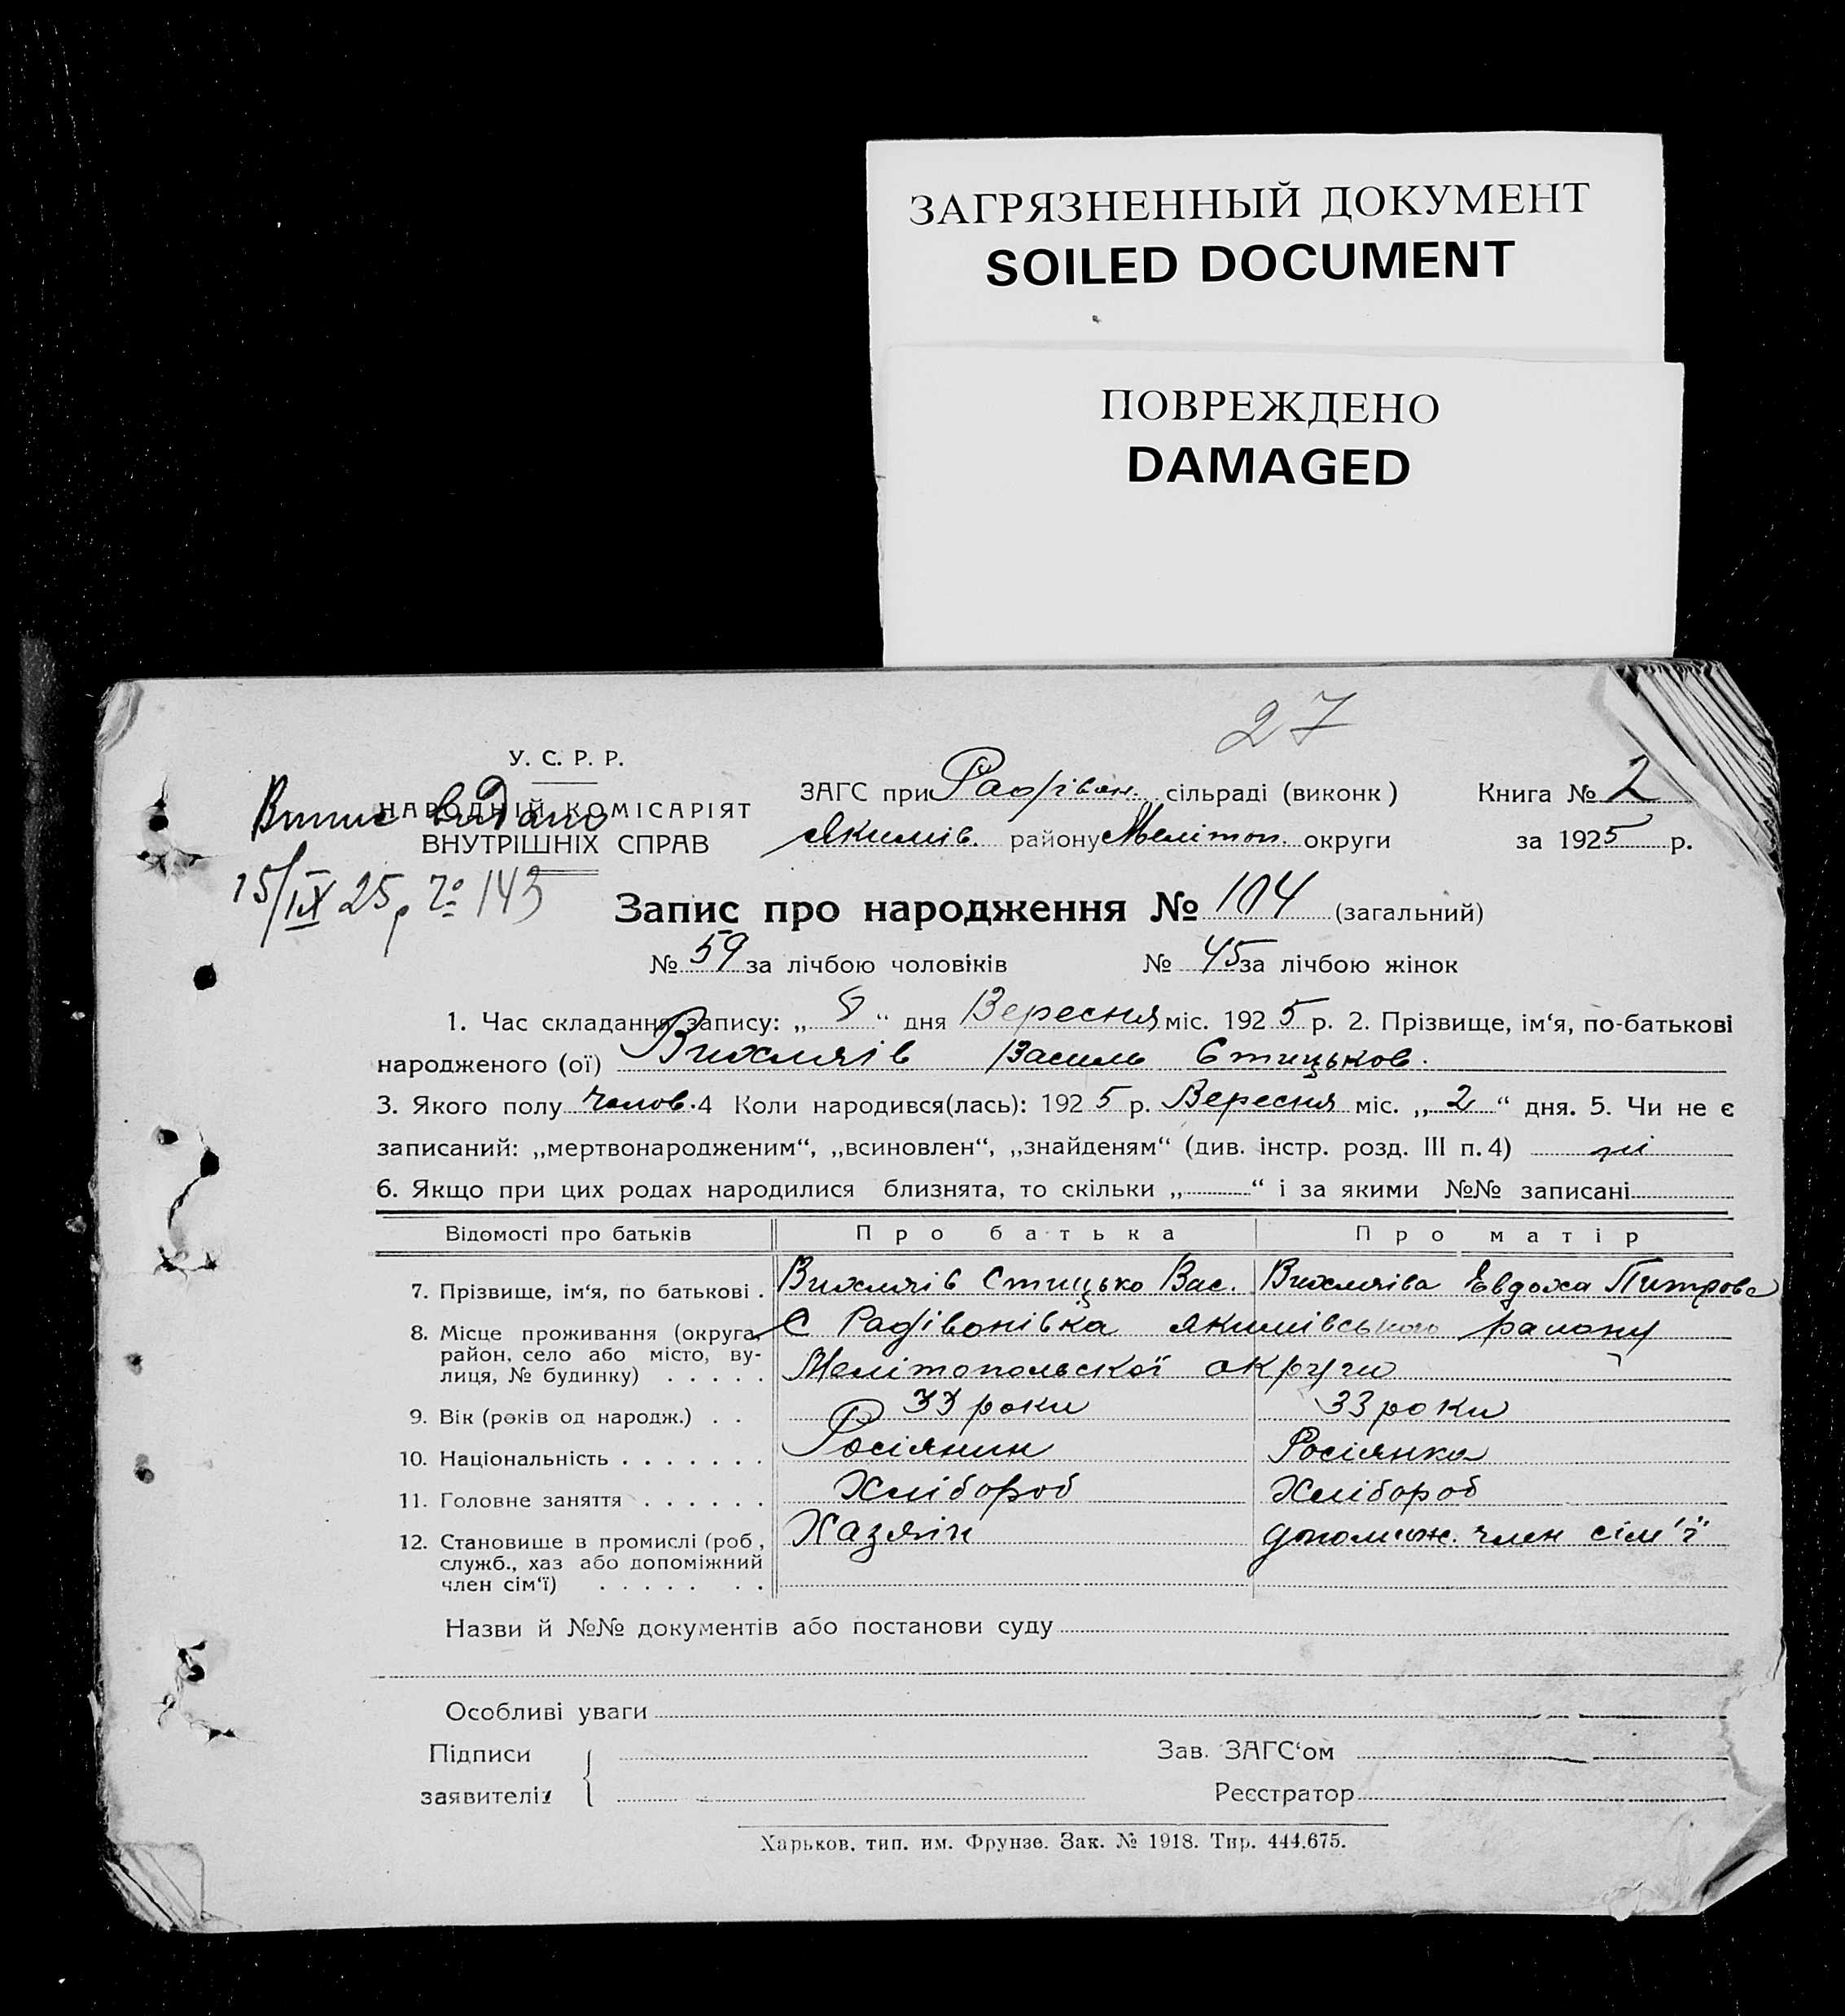 ЗАГРЯЗНЕННЫЙ ДОКУМЕНТ
SOILED DOCUMENT
ПОВРЕЖДЕНО
DAMAGED
27
У. С. Р. Р.
НАРОДНІЙ КОМІСАРІЯТ
ВНУТРІШНІХ СПРАВ
Випис видано
15/IX 25 р № 143
ЗАГС при Радівон. сільраді (виконк) Книга № 2
Якимів. району Мелітоп. округи за 1925 р.
Запис про народження № 104 (загальний)
№ 59 за лічбою чоловіків № 45 за лічбою жінок
1. Час складання запису: „ 8 “ дня Вересня міс. 1925 р. 2. Прізвище, ім‘я, по-батькові
народженого (ої) Вихлячів Василь Стицьков.
3. Якого полу Чолов. 4 Коли народився(лась): 1925 р. Вересня міс. „ 2 “ дня. 5. Чи не є
записаний: „мертвонародженим“, „всиновлен“, „знайденям“ (див. інстр. розд. III п. 4) ні
6. Якщо при цих родах народилися близнята, то скільки „ “ і за якими №№ записані
Відомості про батьків Про батька Про матір
7. Прізвище, ім‘я, по батькові . Вихлячів Стицько Вас. Вихлячіва Евдоха Питрова
8. Місце проживання (округа, С Радівонівка Якимівського району
район, село або місто, ву-
лиця, № будинку) . . . . . Мелітопольскої округи
9. Вік (років од народж.) . . 33 роки 33 роки
10. Національність . . . . . . . Росіянин Росіянка
11. Головне заняття . . . . . . Хлібороб Хлібороб
12. Становище в промислі (роб, Хазяїн допоміж. член сім'ї
служб., хаз або допоміжний
член сім‘ї) . . . . . . .
Назви й №№ документів або постанови суду
Особливі уваги
Підписи Зав. ЗАГС‘ом
заявителів Реєстратор
Харьков, тип. им. Фрунзе. Зак. № 1918. Тир. 444.675.